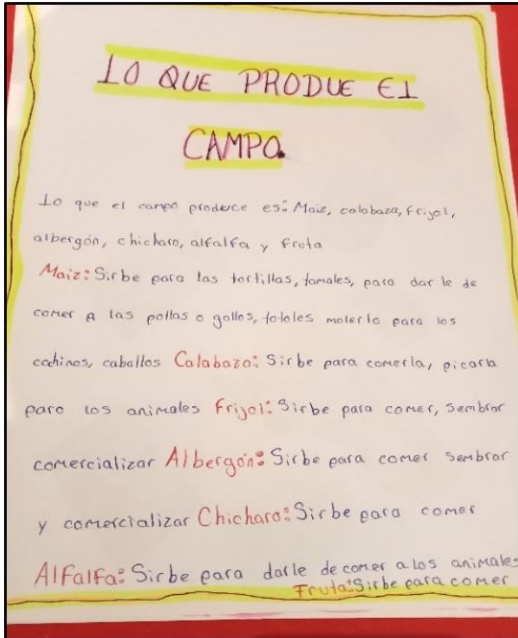 LO QUE PRODUE El
CAMPO.
Lo que el campo produce es: Maiz, calabaza, frijol,
albergón, chicharo, alfalfa y fruta
Maiz: Sirbe para las tortillas, tamales, para dar le de
comer a las pollas o gallos, totoles molerlo para los
cochinos, caballos Calabaza: Sirbe para comerla, picarla
para los animales Frijol: Sirbe para comer, sembrar
comercializar Albergón: Sirbe para comer sembrar
y comercializar Chicharo: Sirbe para comer
Alfalfa: Sirbe para darle de comer a los animales
Fruta: Sirbe para comer